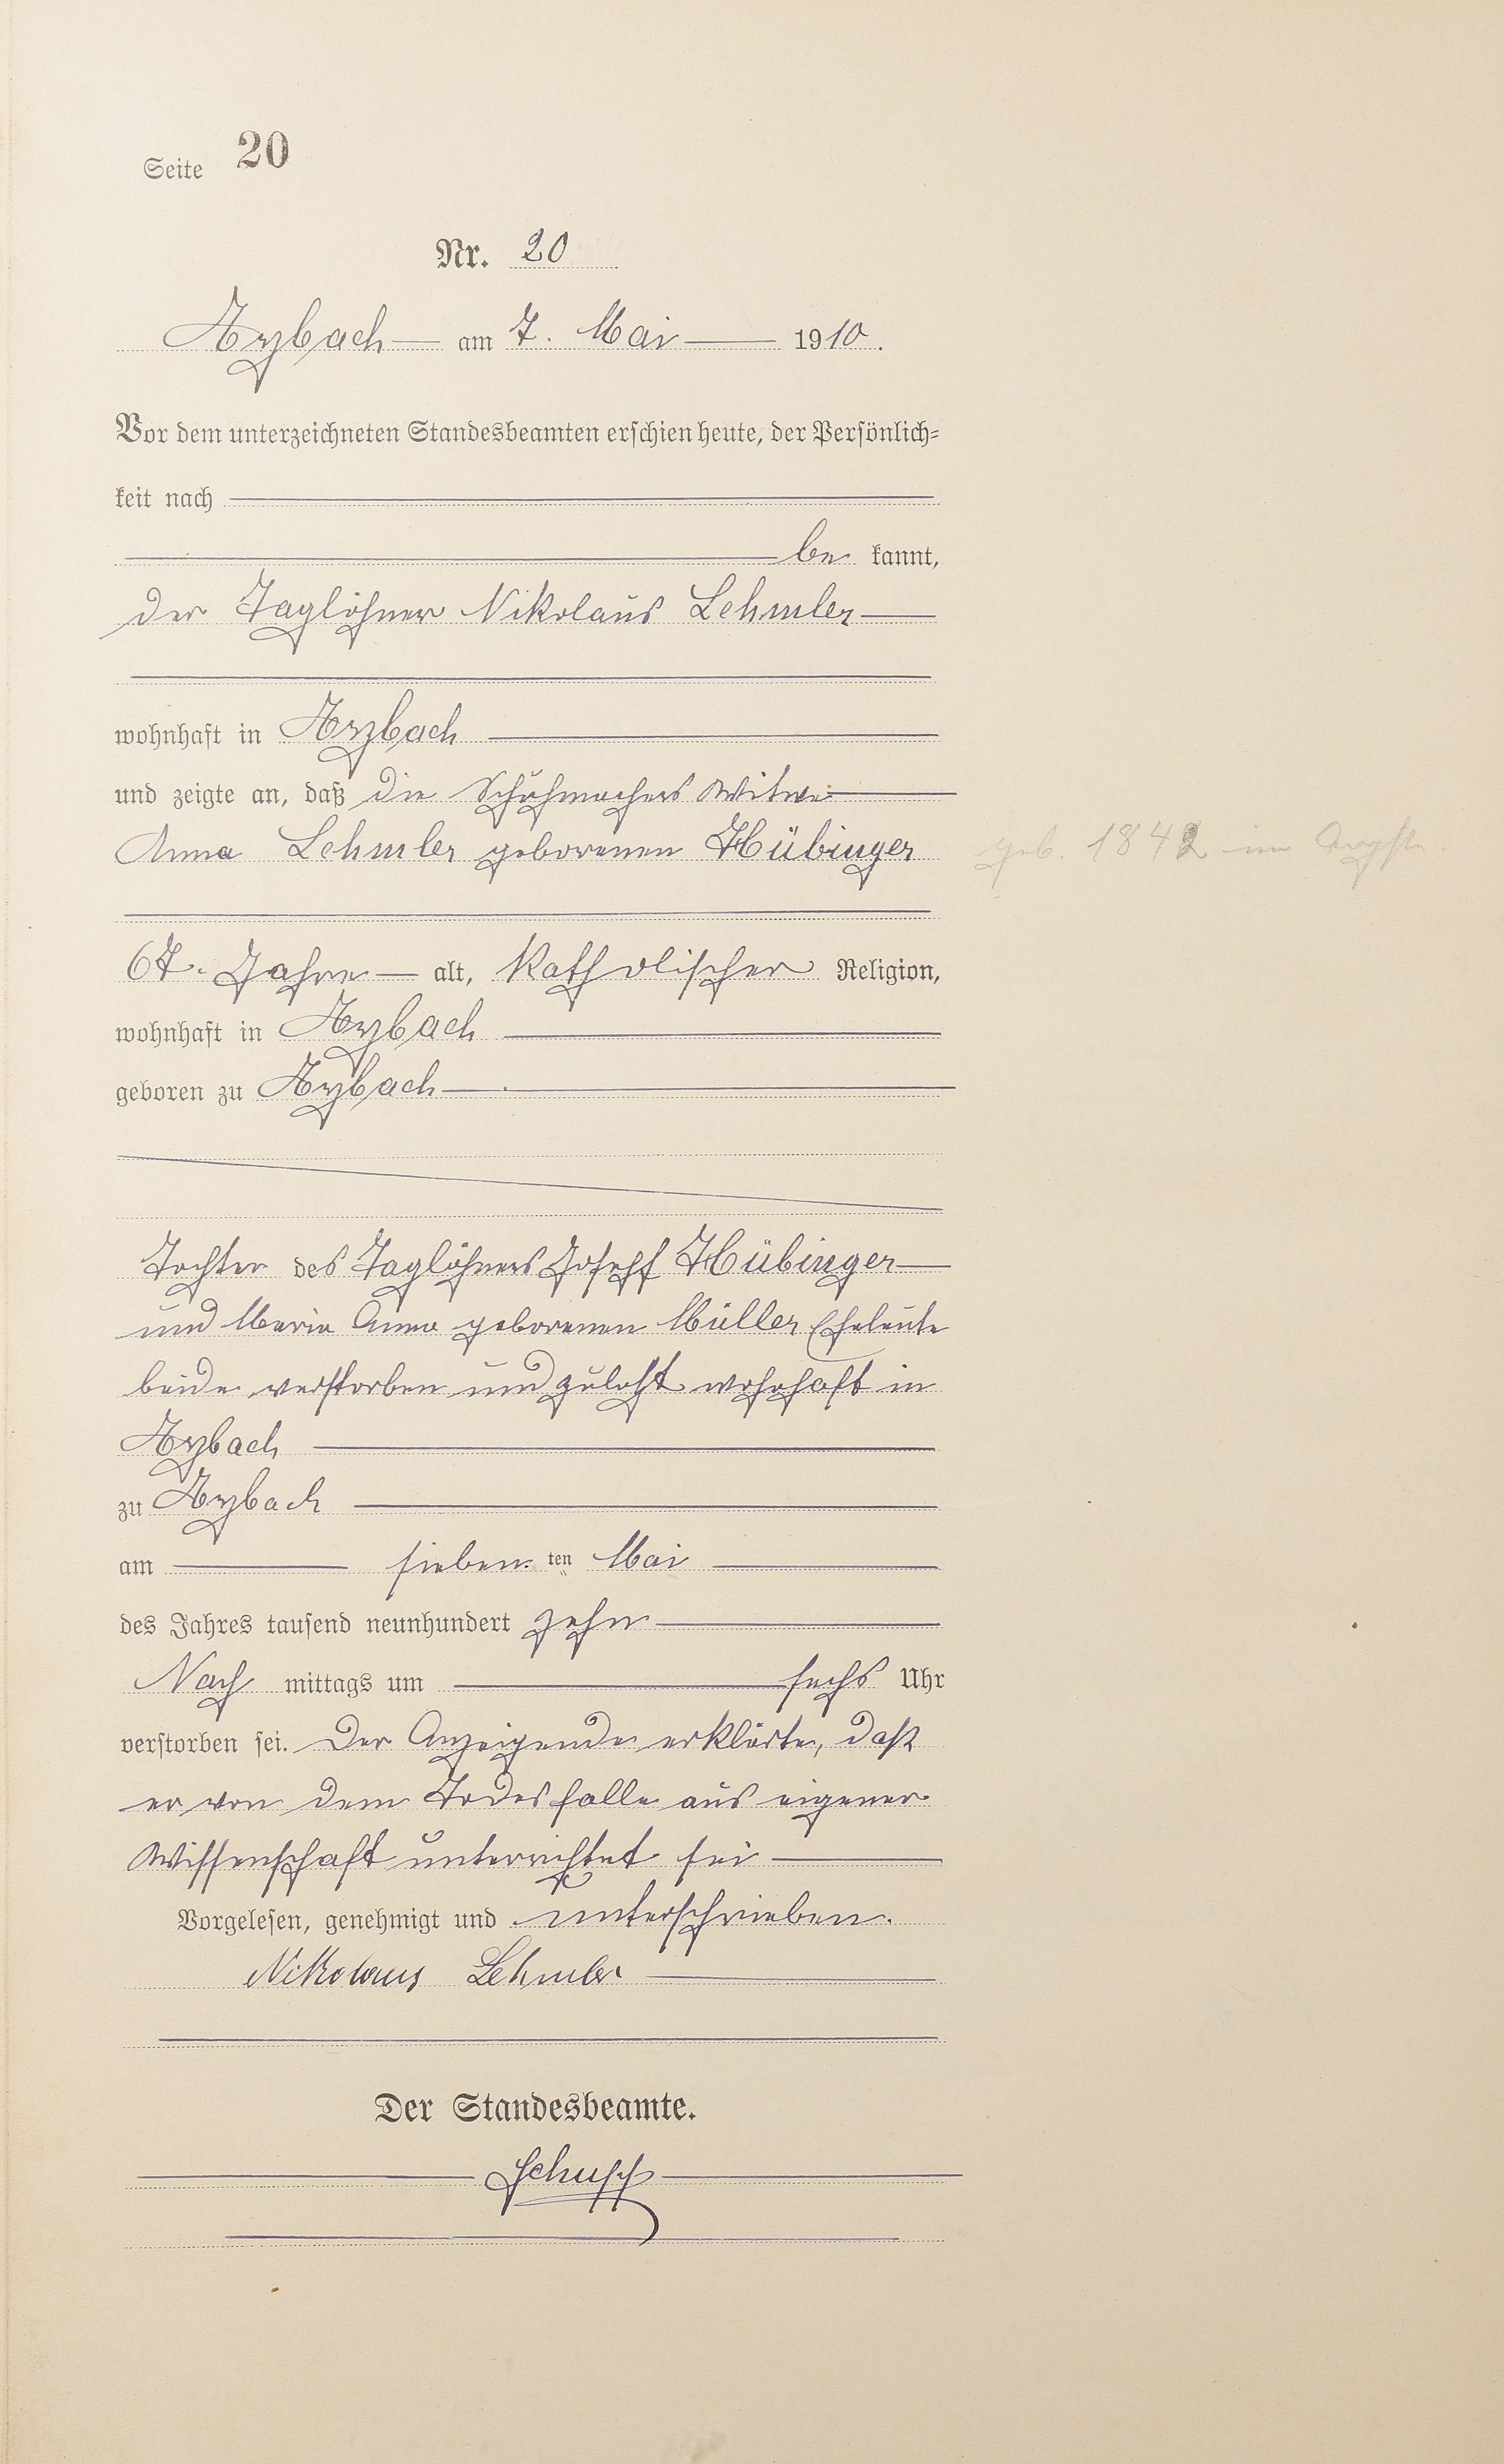 Seite 20
Nr. 20
Arzbach am 7. Mai 1910.
Vor dem unterzeichneten Standesbeamten erschien heute, der Persönlich=
keit nach
be kannt,
der Taglöhner Nikolaus Lehmler
wohnhaft in Arzbach
und zeigte an, daß die Schuhmachers Witwe
Anna Lehmler geborenen Hübinger
geb. 1842 im
67 Jahre alt, katholischer Religion,
wohnhaft in Arzbach
geboren zu Arzbach
Tochter des Taglöhners Joseph Hübinger
und Maria Anna geborenen Müller Eheleute
beide verstorben und zuletzt wohnhaft in
Arzbach
zu Arzbach
am sieben ten Mai
des Jahres tausend neunhundert zehn
Nach mittags um sechs Uhr
verstorben sei. Der Anzeigende erklärte, daß
er von dem Todesfalle aus eigener
Wissenschaft unterrichtet sei
Vorgelesen, genehmigt und unterschrieben.
Nikolaus Lehmler
Der Standesbeamte.
Schupp